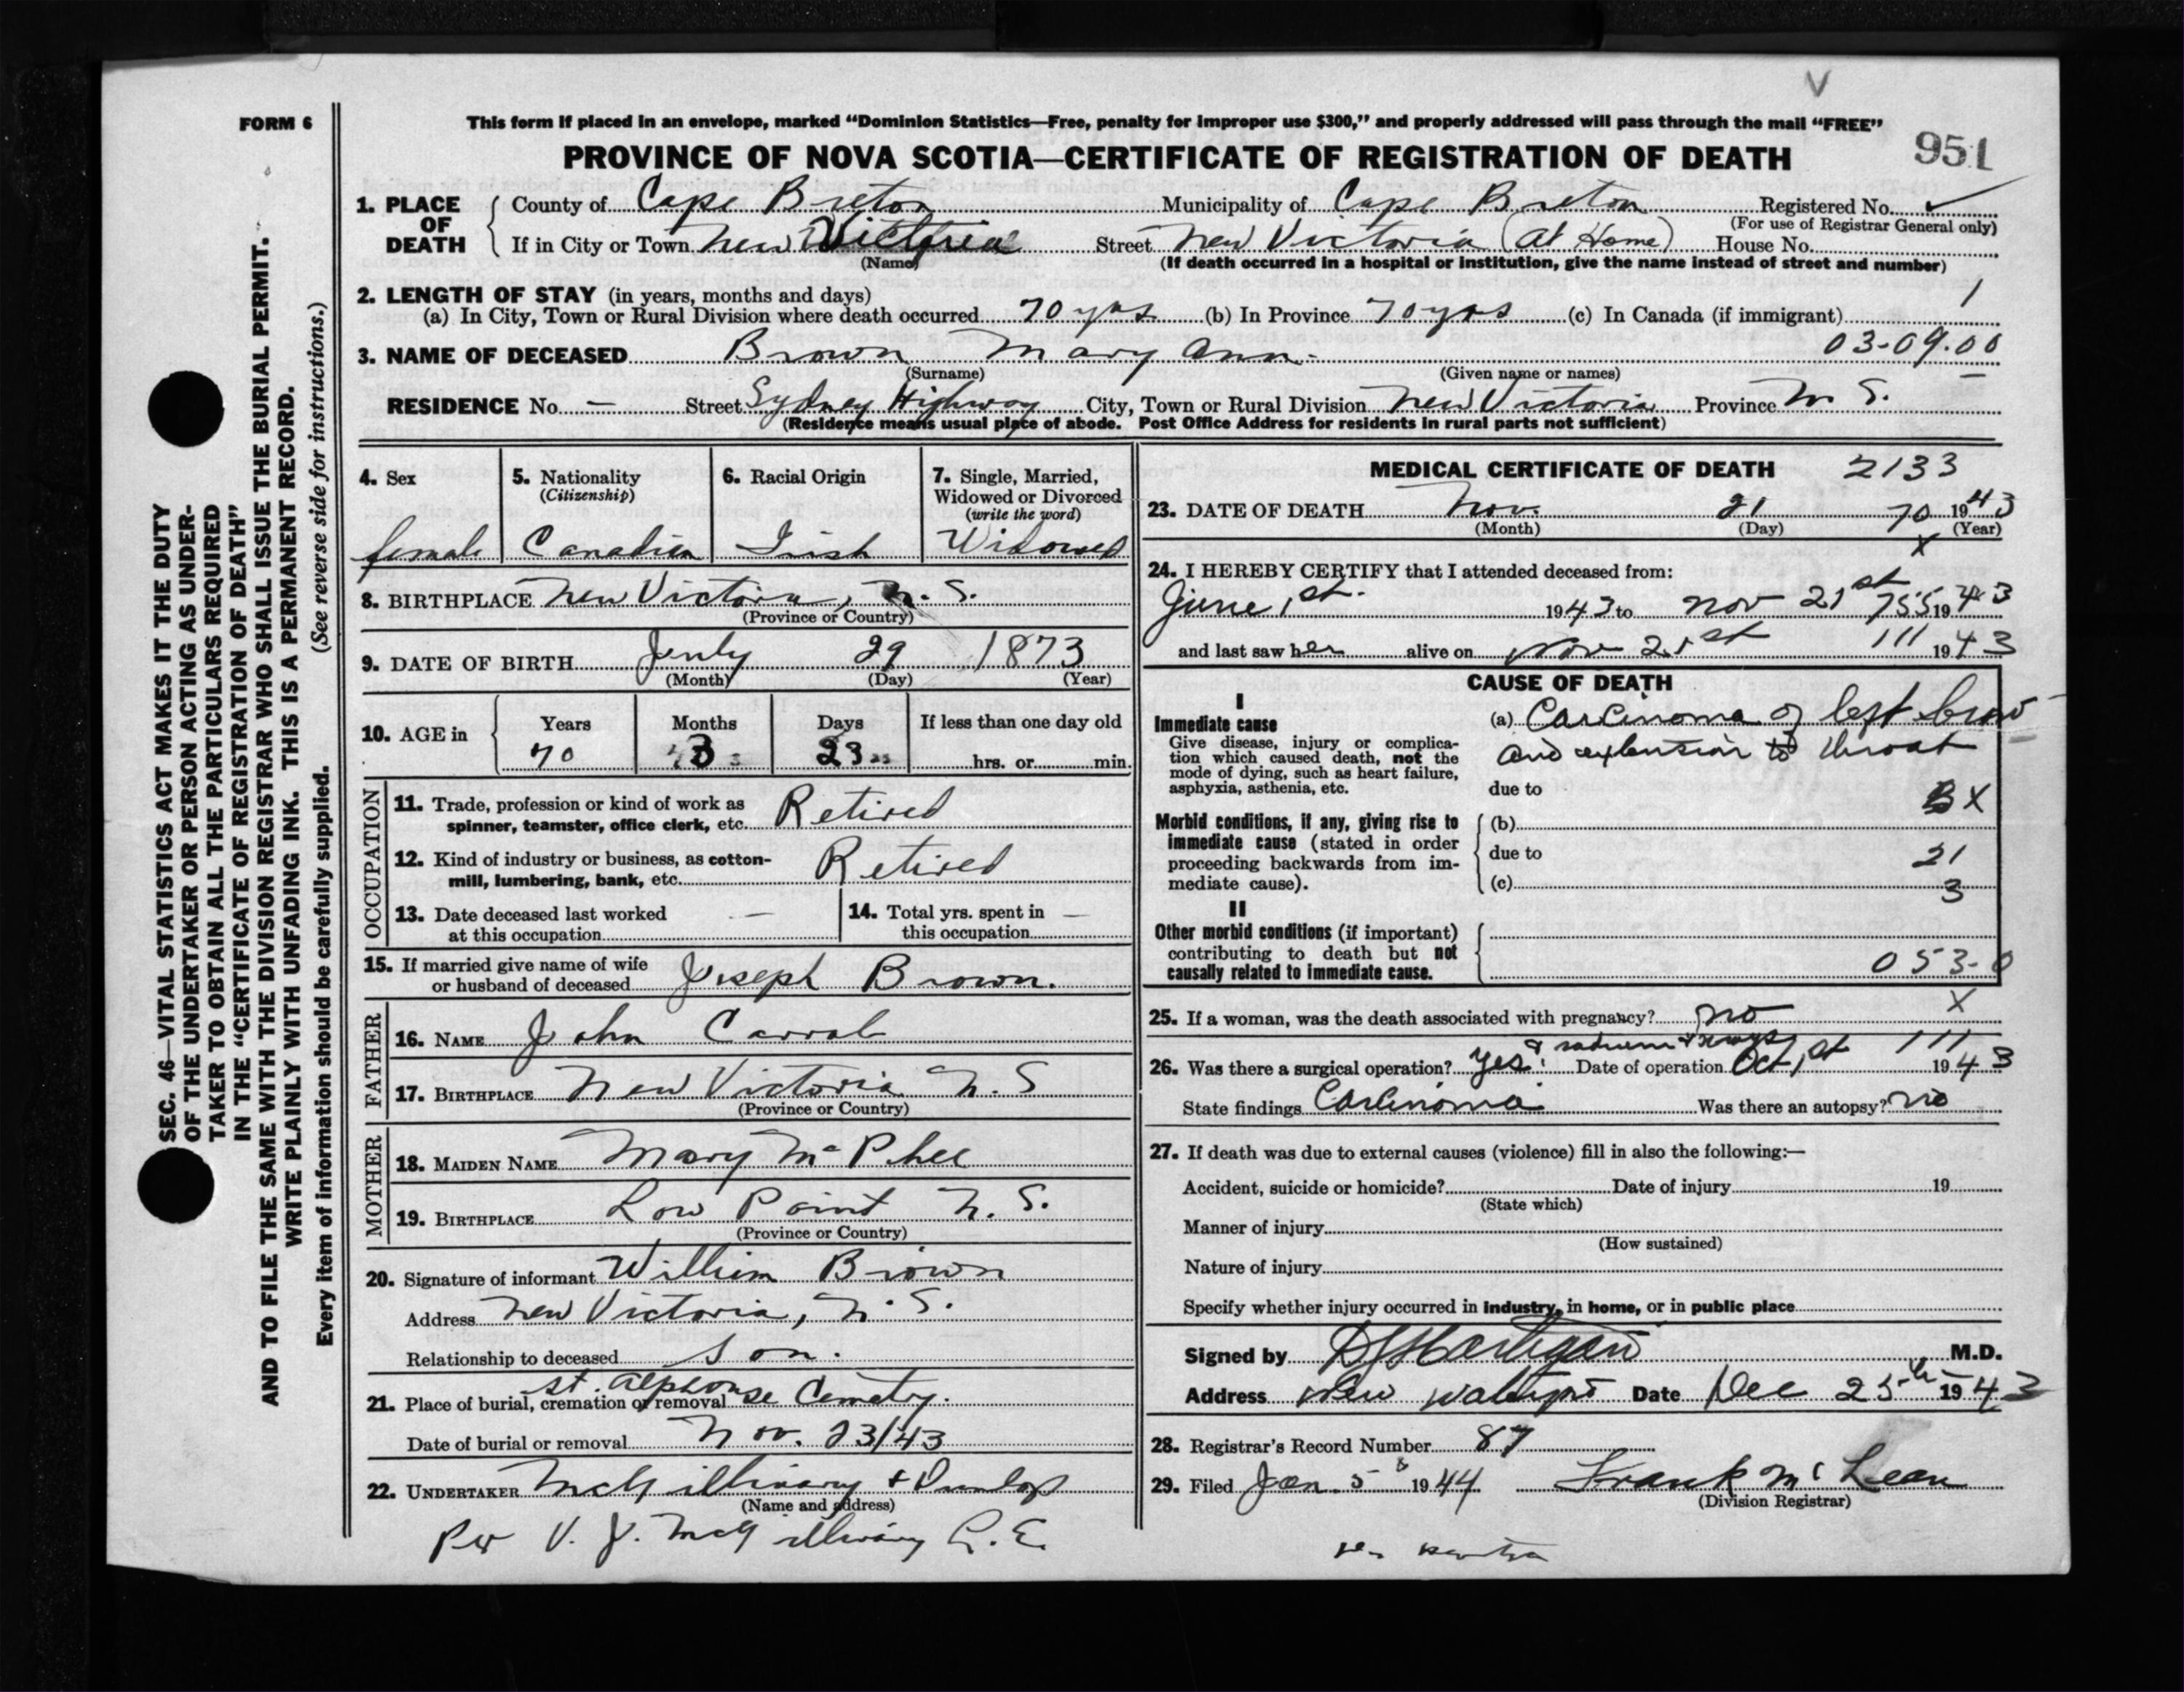 V
FORM 6
This form if placed in an envelope, marked “Dominion Statistics—Free, penalty for improper use $300,” and properly addressed will pass through the mail “FREE”
PROVINCE OF NOVA SCOTIA—CERTIFICATE OF REGISTRATION OF DEATH
951
SEC. 46—VITAL STATISTICS ACT MAKES IT THE DUTY
OF THE UNDERTAKER OR PERSON ACTING AS UNDER-
TAKER TO OBTAIN ALL THE PARTICULARS REQUIRED
IN THE “CERTIFICATE OF REGISTRATION OF DEATH”
AND TO FILE THE SAME WITH THE DIVISION REGISTRAR WHO SHALL ISSUE THE BURIAL PERMIT.
WRITE PLAINLY WITH UNFADING INK. THIS IS A PERMANENT RECORD.
Every item of information should be carefully supplied. (See reverse side for instructions.)
1. PLACE OF DEATH
County of Cape Breton Municipality of Cape Breton Registered No. ✓
(For use of Registrar General only)
If in City or Town New Victoria Street New Victoria (At Home) House No.
(Name) (If death occurred in a hospital or institution, give the name instead of street and number)
2. LENGTH OF STAY (in years, months and days) 1
(a) In City, Town or Rural Division where death occurred 70 yrs (b) In Province 70 yrs (c) In Canada (if immigrant)
3. NAME OF DECEASED Brown Mary Ann. 03-09.00
(Surname) (Given name or names)
RESIDENCE No. — Street Sydney Highway City, Town or Rural Division New Victoria Province N. S.
(Residence means usual place of abode. Post Office Address for residents in rural parts not sufficient)
4. Sex
female
5. Nationality
(Citizenship)
Canadian
6. Racial Origin
Irish
7. Single, Married,
Widowed or Divorced
(write the word)
Widowed
8. BIRTHPLACE New Victoria, N. S.
(Province or Country)
9. DATE OF BIRTH July 29 1873
(Month) (Day) (Year)
10. AGE in
Years Months Days If less than one day old
70 3 23 hrs. or min.
OCCUPATION
11. Trade, profession or kind of work as
spinner, teamster, office clerk, etc. Retired
12. Kind of industry or business, as cotton-
mill, lumbering, bank, etc. Retired
13. Date deceased last worked
at this occupation —
14. Total yrs. spent in
this occupation —
15. If married give name of wife
or husband of deceased Joseph Brown.
FATHER
16. NAME John Carrol
17. BIRTHPLACE New Victoria N. S
(Province or Country)
MOTHER
18. MAIDEN NAME Mary McPhee
19. BIRTHPLACE Low Point N. S.
(Province or Country)
20. Signature of informant William Brown
Address New Victoria, N. S.
Relationship to deceased son.
21. Place of burial, cremation or removal St. Alphonse Cemetry.
Date of burial or removal Nov. 23/43
22. UNDERTAKER McGillivary + Dunlop
(Name and address)
Per V. J. McGillivary
MEDICAL CERTIFICATE OF DEATH 2133
23. DATE OF DEATH Nov. 21 70 1943
(Month) (Day) (Year)
X
24. I HEREBY CERTIFY that I attended deceased from:
June 1st. 1943 to Nov 21st 755 1943
and last saw her alive on Nov 21st 111 1943
CAUSE OF DEATH
I
Immediate cause
Give disease, injury or complica-
tion which caused death, not the
mode of dying, such as heart failure,
asphyxia, asthenia, etc.
(a) Carcinoma of left
and extension to throat
due to
X
Morbid conditions, if any, giving rise to
immediate cause (stated in order
proceeding backwards from im-
mediate cause).
(b)
due to 21
(c) 3
II
Other morbid conditions (if important)
contributing to death but not
causally related to immediate cause.
053-0
25. If a woman, was the death associated with pregnancy? no X
& radium & xrays 111
26. Was there a surgical operation? Yes! Date of operation Oct 1st 1943
State findings Carcinoma Was there an autopsy? no
27. If death was due to external causes (violence) fill in also the following:—
Accident, suicide or homicide? Date of injury 19
(State which)
Manner of injury
(How sustained)
Nature of injury
Specify whether injury occurred in industry, in home, or in public place
Signed by Hartigan M.D.
Address New Waterford Date Dec 25th 1943
28. Registrar's Record Number 87
29. Filed Jan. 5 1944 Frank McLean
(Division Registrar)